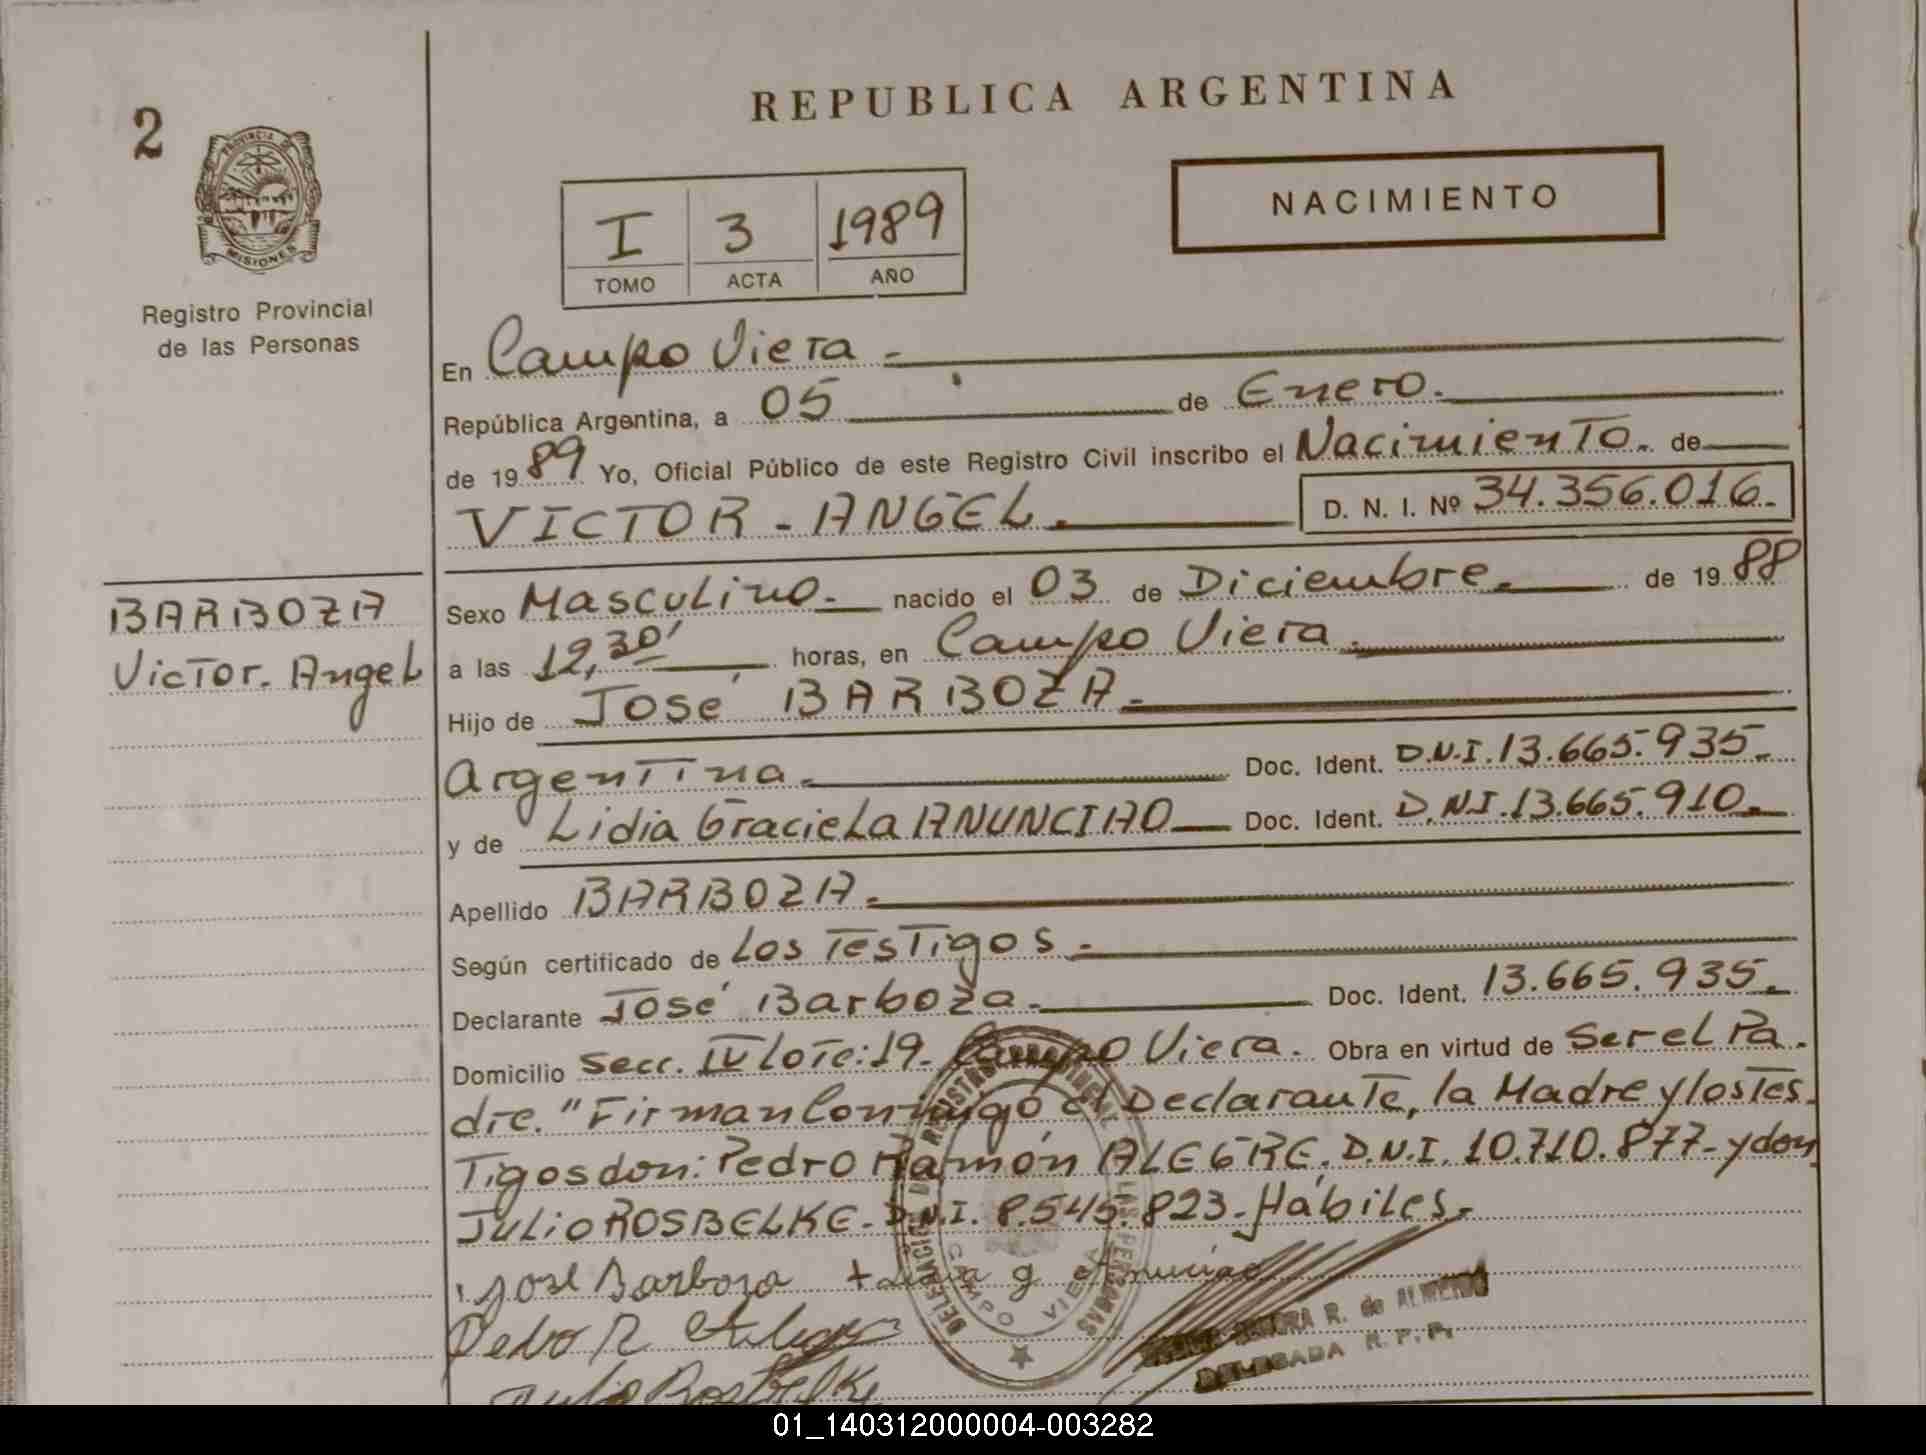 2
PROVINCIA DE
MISIONES
Registro Provincial
de las Personas
BARBOZA
Victor. Angel
REPUBLICA ARGENTINA
I 3 1989
TOMO ACTA AÑO
NACIMIENTO
En Campo Viera -
República Argentina, a 05 de Enero.
de 1989 Yo, Oficial Público de este Registro Civil inscribo el Nacimiento. de
VICTOR - ANGEL. D. N. I. Nº 34.356.016.-
Sexo Masculino. nacido el 03 de Diciembre. de 1988
a las 12,30' horas, en Campo Viera.
Hijo de José BARBOZA.-
Argentina. Doc. Ident. D.N.I. 13.665.935.-
y de Lidia Graciela ANUNCIAO Doc. Ident. D.N.I. 13.665.910.
Apellido BARBOZA.
Según certificado de Los Testigos.-
Declarante José Barboza. Doc. Ident. 13.665.935.
Domicilio Secc. IV Lote: 19. Campo Viera. Obra en virtud de Ser el Pa.
dre. "Firman Conmigo el Declarante, la Madre y los Tes.
Tigos don: Pedro Ramón ALEGRE. D.N.I. 10.710.877- y don
JULIO ROSBELKE. D.N.I. 8.545.823- Hábiles.
José Barboza + Lidia g Anunciao
Pedro R
Julio Rosbelke
DELEGACION DE REGISTRO PROVINCIAL DE LAS PERSONAS
CAMPO VIERA
R. de ALMEIDA
DELEGADA R. P. P.
01_140312000004-003282